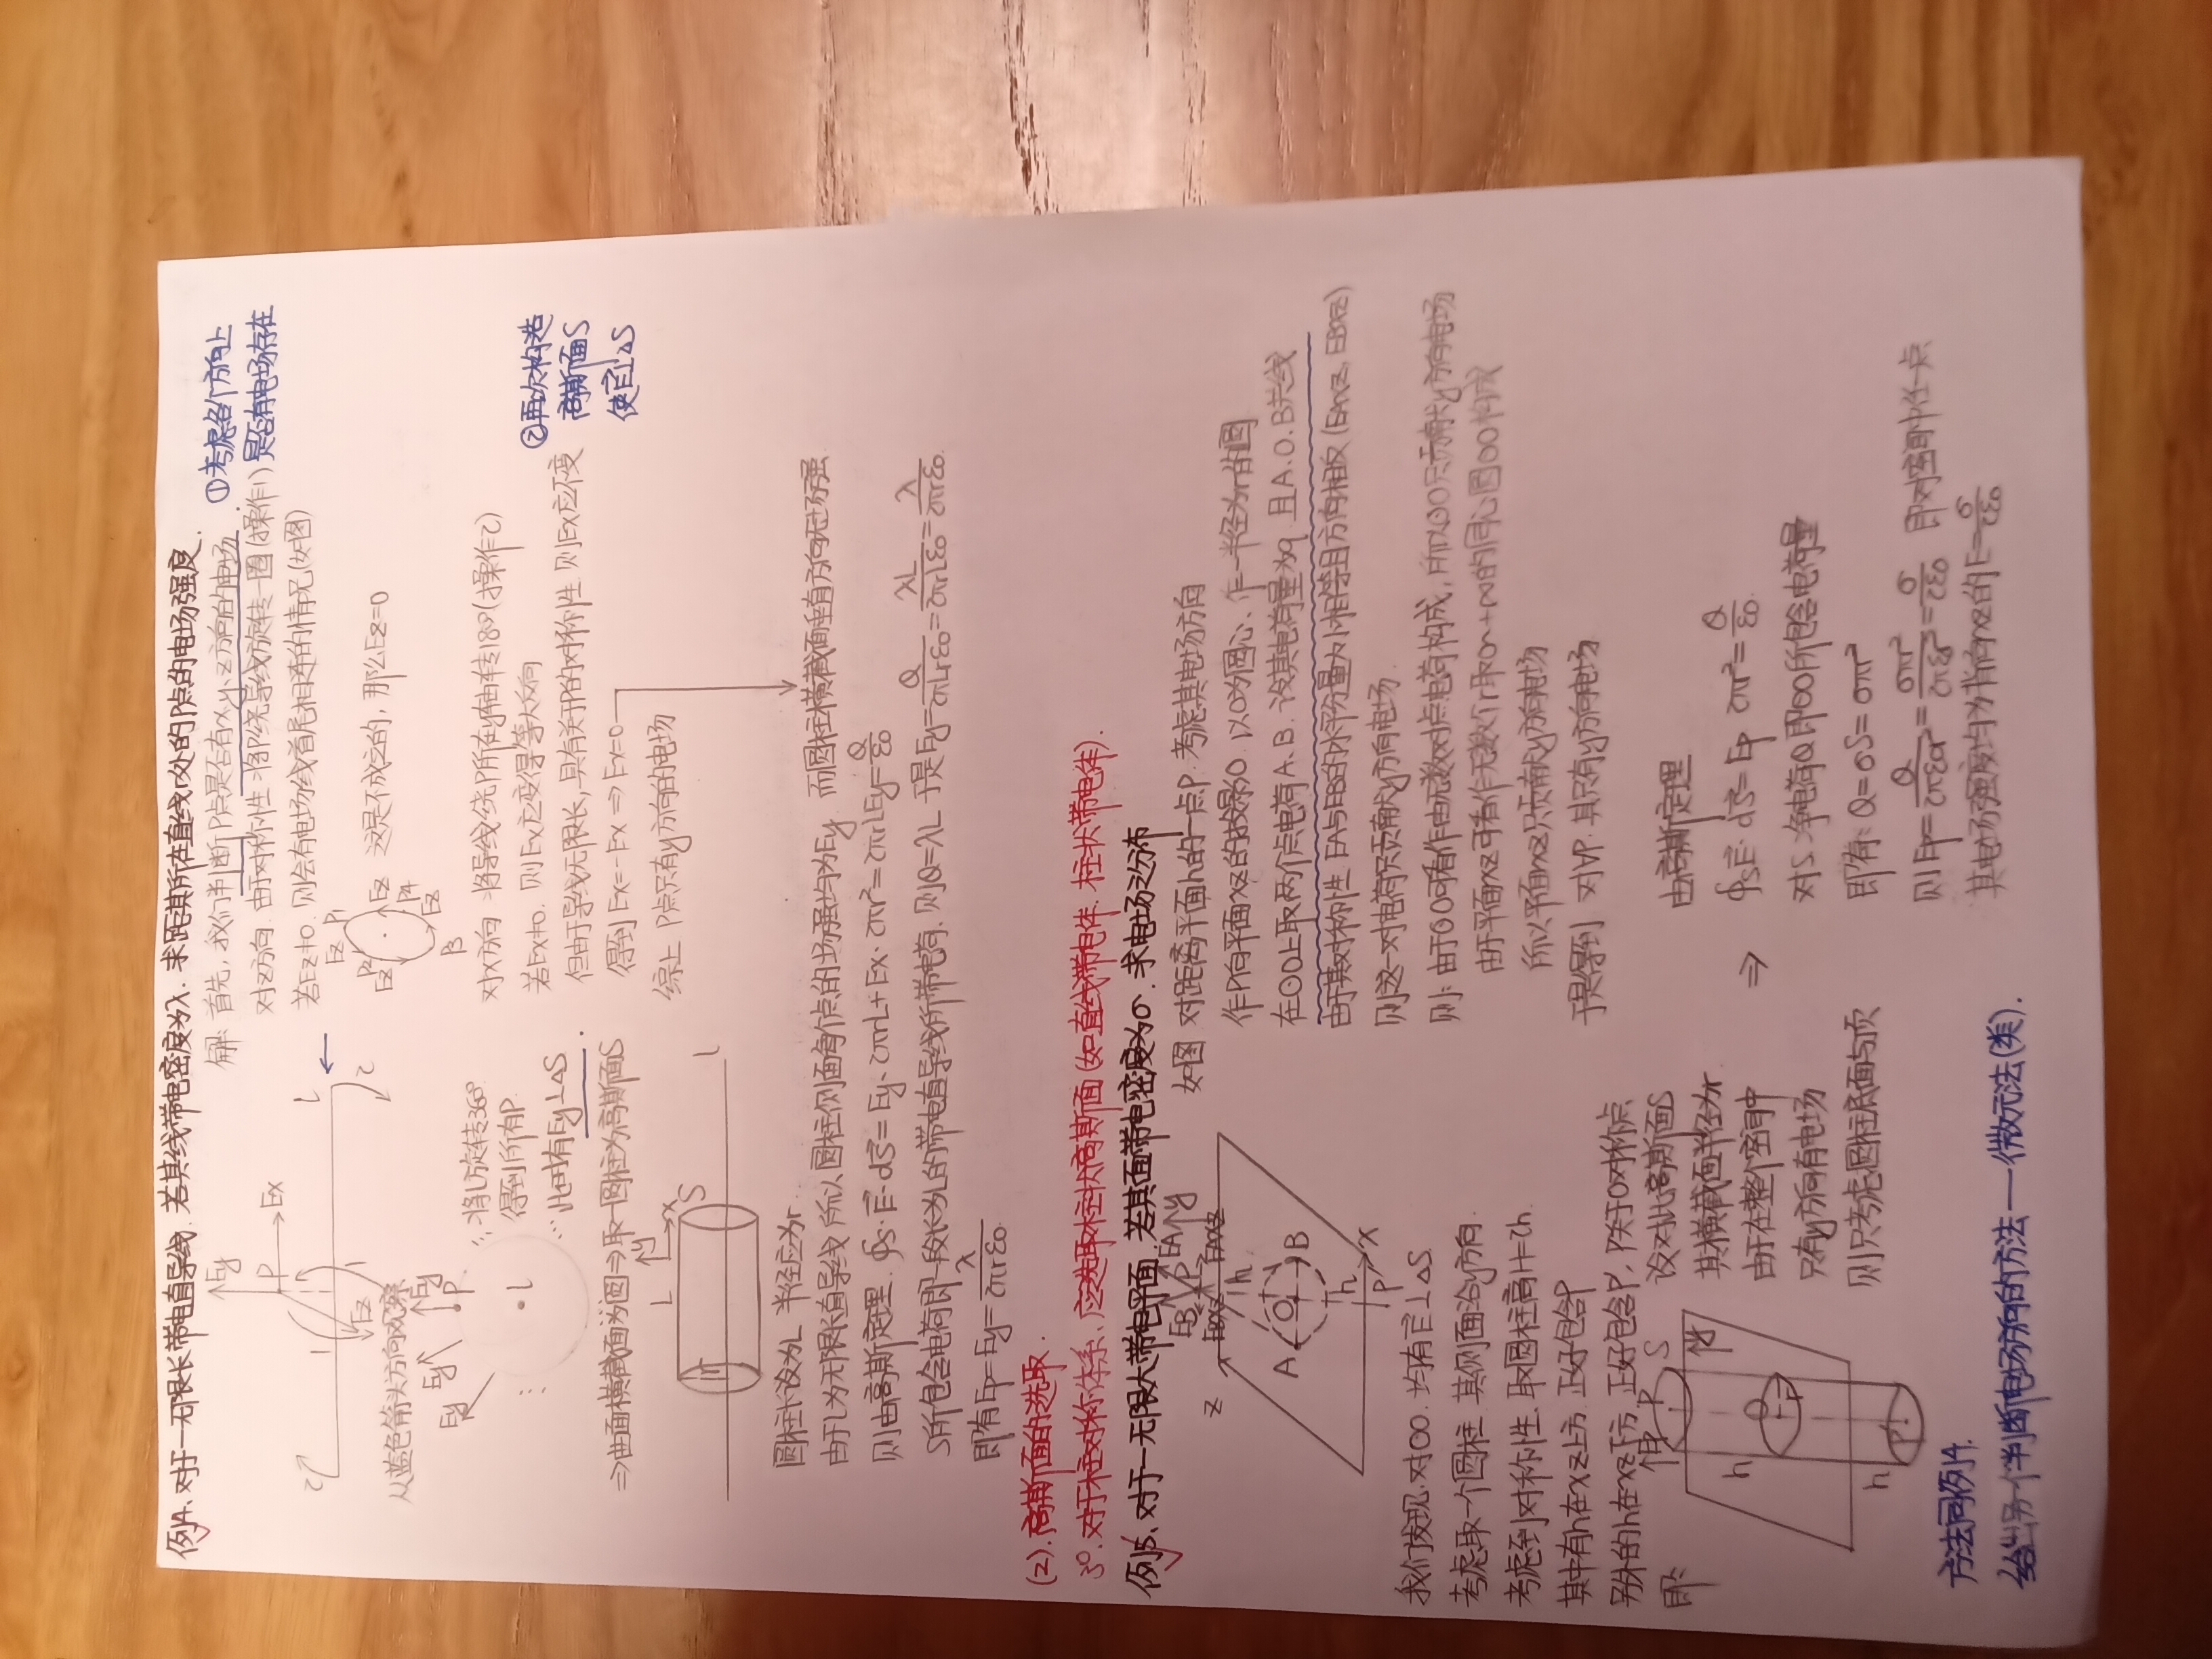 例4. 对于一无限长带电直导线. 若其线带电密度为λ. 求距其所在直线r处的P点的电场强度.
解: 首先, 我们判断P点是否有x.y.z方向的电场
①考虑各个方向上
是否有电场存在
对z方向. 由于对称性. 将P绕导线旋转一圈(操作1)
若Ez≠0. 则会有电场线首尾相连的情况(如图)
这是不成立的, 那么Ez=0
对x方向 将导线绕P所在y轴转180°(操作2)
若Ex≠0. 则Ex应变得等大反向
但由于导线无限长, 具有关于P的对称性. 则Ex应不变
得到 Ex=-Ex ⇒ Ex=0
综上 P点只有y方向的电场
②再次构造
高斯面S
使E⊥ΔS
从蓝色箭头方向观察
∵将l旋转360°
得到所有P.
∴此时有Ey⊥ΔS
⇒曲面横截面为圆⇒取一圆柱为高斯面S
圆柱长设为L 半径应为r.
由于l为无限长直导线 所以 圆柱侧面每个点的场强均为Ey 而圆柱横截面垂直方向无场强
则由高斯定理. ∮s·E·dS = Ey·2πrL + Ex·2πr² = 2πrLEy = Q/ε0
S所包含电荷即一段长为L的带电直导线所带电荷. 则Q=λL 于是Ey = Q/2πLrε0 = λL/2πrLε0 = λ/2πrε0
即有 Ep = Ey = λ/2πrε0
(2). 高斯面的选取.
3°. 对于柱对称体系、应选取柱状高斯面(如直线带电体. 柱状带电体).
例5. 对于一无限大带电平面. 若其面带电密度为σ. 求电场之分布
如图 对距离平面h的一点P. 考虑其电场方向
作P向平面xz的投影O. 以O为圆心、作一半径为r的圆
在⊙O上取两个点电荷A.B. 设其电荷量为q. 且A.O.B共线
由于其对称性 EA与EB的水平分量大小相等且方向相反 (EAxz, EBxz)
则这一对电荷只贡献y方向电场.
则: 由于⊙O可看作由无数对点电荷构成, 所以⊙O只贡献y方向电场
由于平面xz可看作无数个r取0~+∞的同心圆⊙O构成
所以平面xz只贡献y方向电场
于是得到 对∀P. 其只有y方向电场
我们发现. 对⊙O. 均有E⊥ΔS.
考虑取一个圆柱. 其侧面沿y方向.
考虑到对称性. 取圆柱高H=2h.
其中有h在xz上方. 正好包含P
另外的h在xz下方. 正好包含P'. P关于O对称点
即:
设对此高斯面S
其横截面半径为r.
由于在整个空间中
只有y方向有电场
则只考虑圆柱底面与顶
⇒
由高斯定理
∮sE·dS = Ep·2πr² = Q/ε0.
对S. 净电荷Q即⊙O所包含电荷量
即有: Q=σS=σπr²
则 Ep = Q/2πε0r² = σπr²/2πε0r² = σ/2ε0 即对空间中任一点
其电场强度均为背向xz的E=σ/2ε0
方法同例4.
给出另一个判断电场方向的方法——微元法(类).